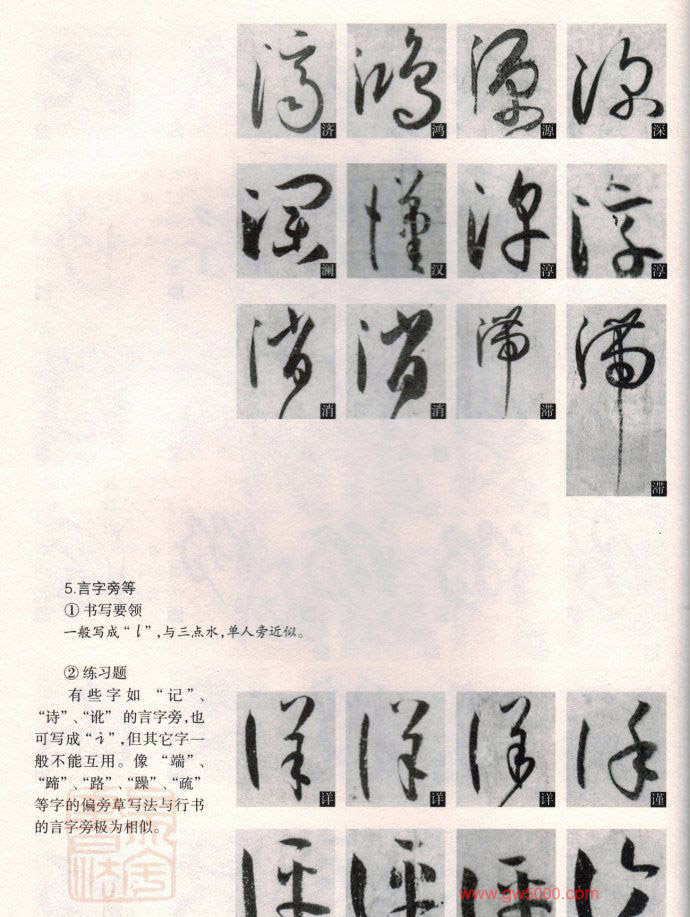 济 鸿 源 深
澜 汉 淳 淳
消 消 滞 滞
5.言字旁等
① 书写要领
一般写成“讠”,与三点水,单人旁近似。
② 练习题
有些字如“记”、
“诗”、“讹”的言字旁,也
可写成“讠”,但其它字一
般不能互用。像“端”、
“蹄”、“路”、“躁”“疏”
等字的偏旁草写法与行书
的言字旁极为相似。
详 详 详 谨
www.gw5000.com